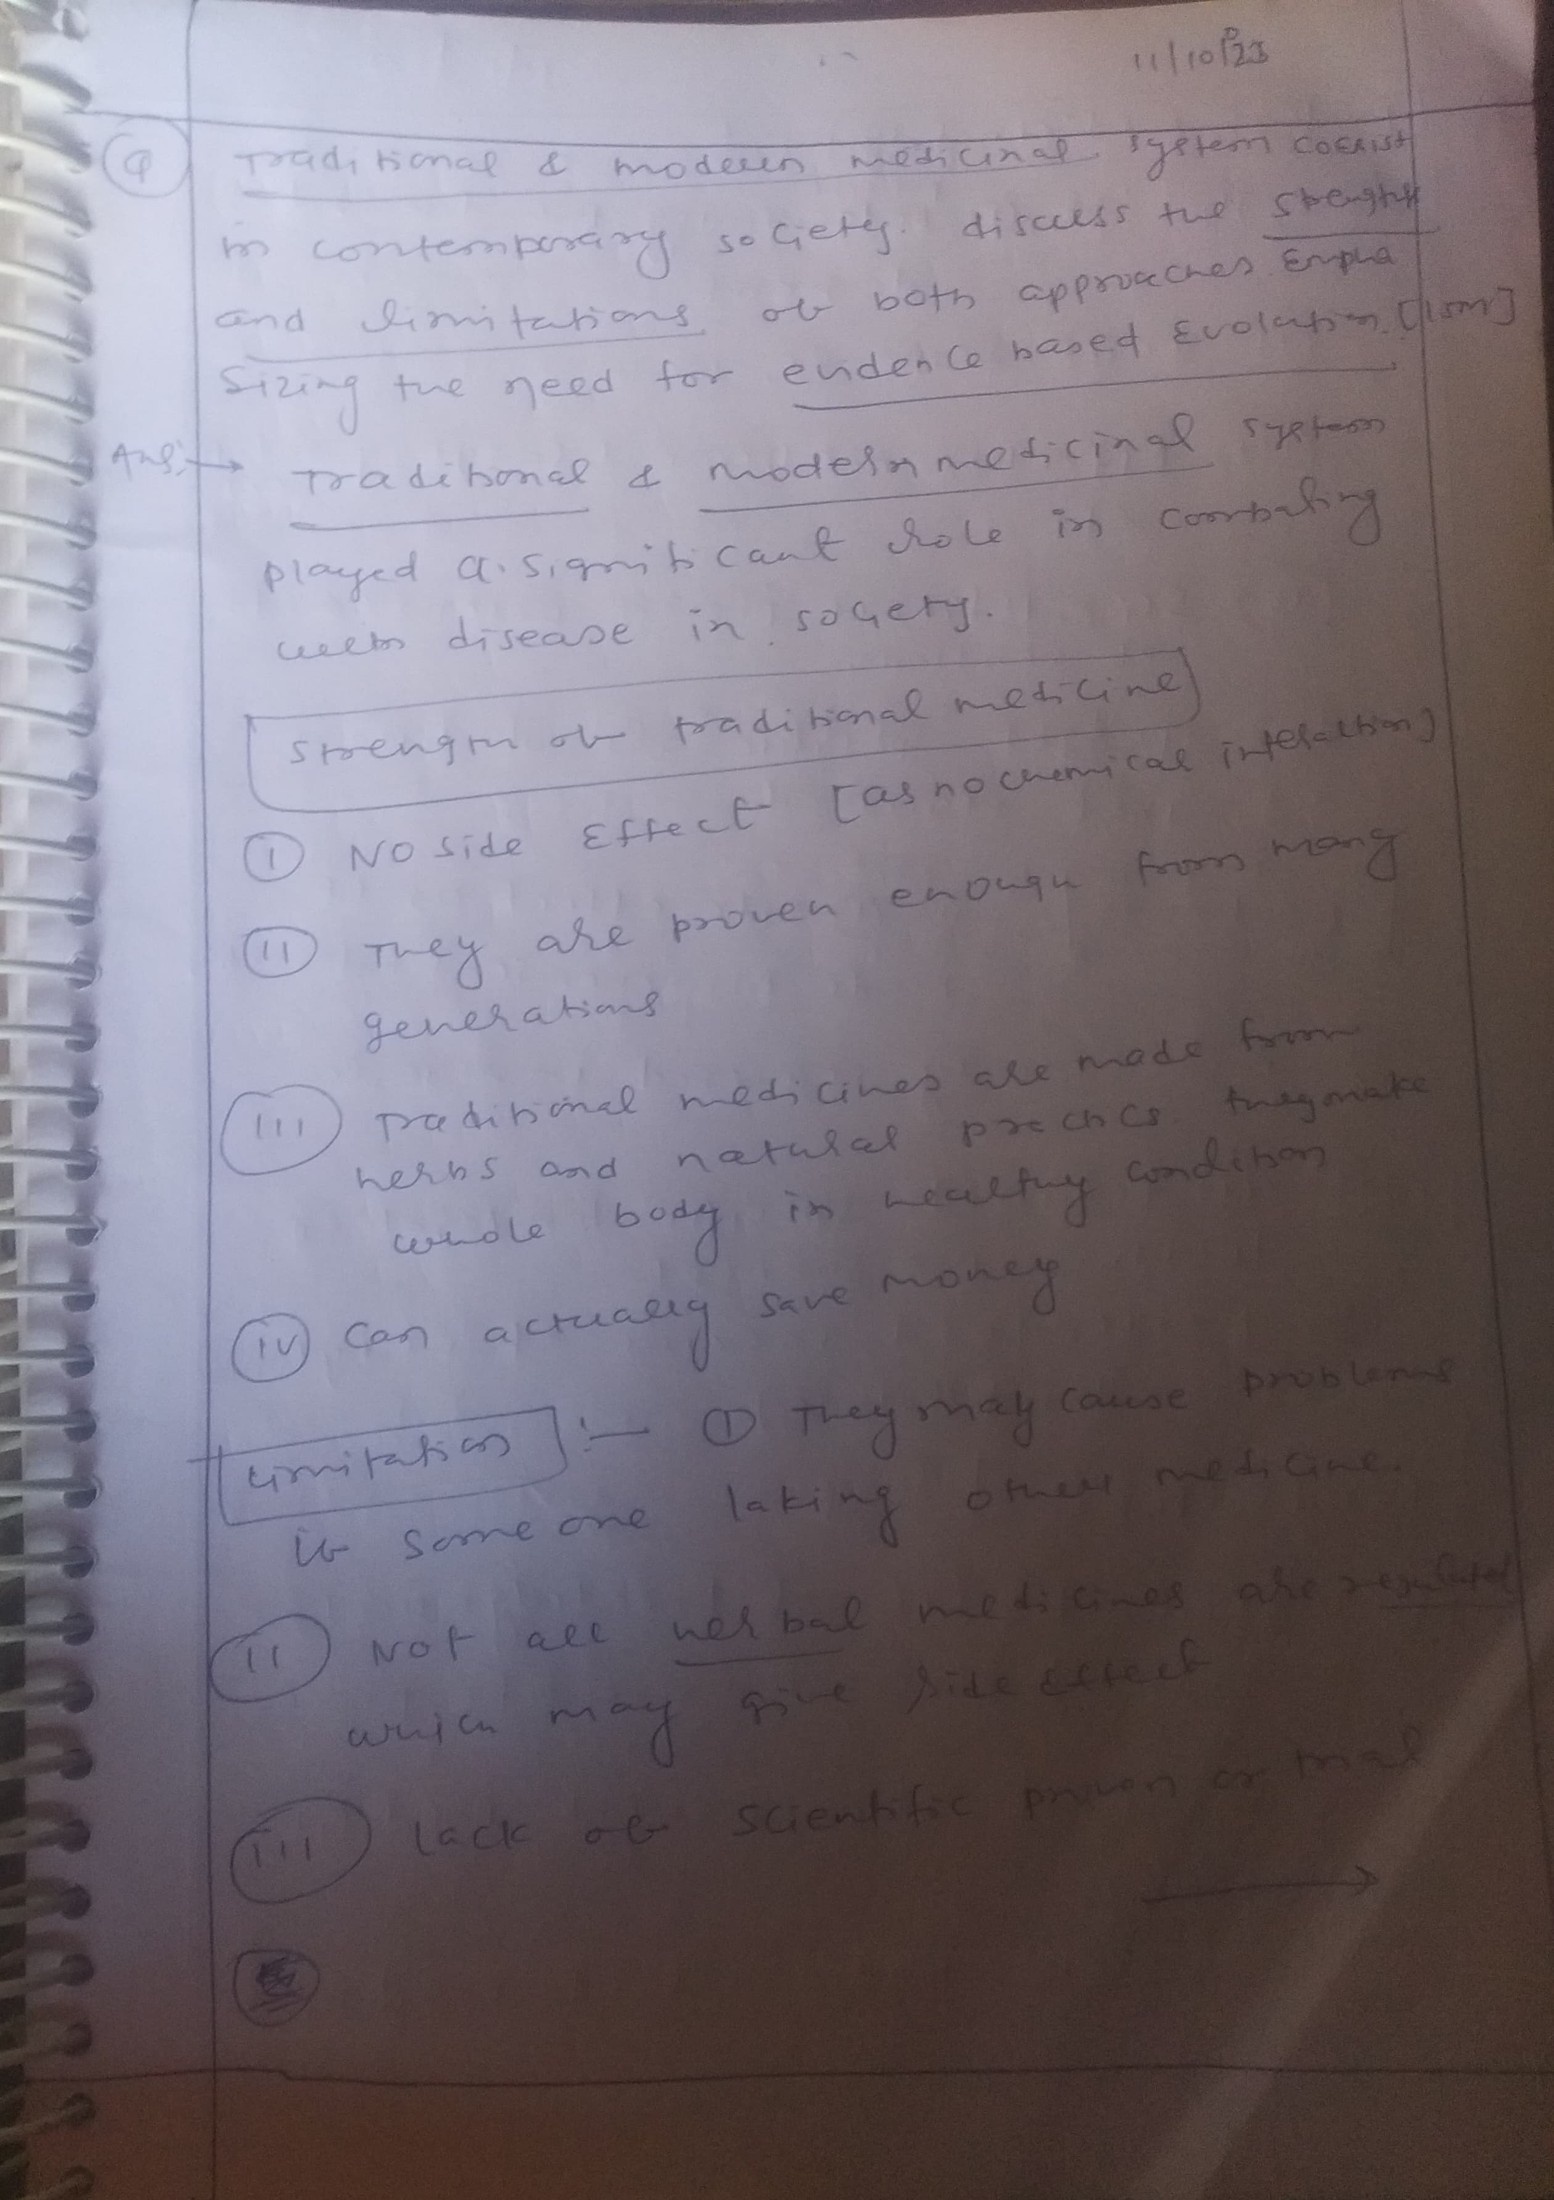 11/10/23
Q Traditional & modern medicinal system coexist
in contemporary society. discuss the strenght
and limitations of both approaches Empha
sizing the need for evidence based Evolution. [15m]
Ans:→ Traditional & modern medicinal system
played a significant role in combating
with disease in society.
Strength of traditional medicine
(I) NO side Effect [as no chemical interaction]
(II) They are proven enough from many
generations
(III) Traditional medicines are made from
herbs and natural practics they make
whole body in healthy condition
(IV) Can actually save money
Limitation :- (I) They may cause problems
if some one taking other medicine.
(II) Not all herbal medicines are regulated
which may give side effect
(III) Lack of scientific proven or trial
→